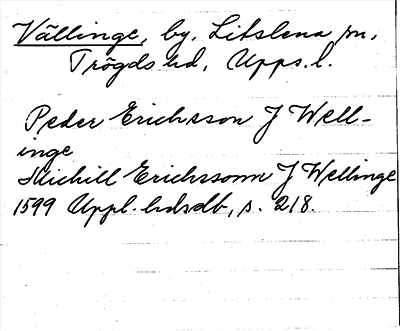 Vällinge, by, Litslena sn,
Trögds hd, Upps. l.
Peder Erichsson J Well-
inge
Michill Erichssonn J Wellinge
1599 Uppl. hdsdb, s. 218.